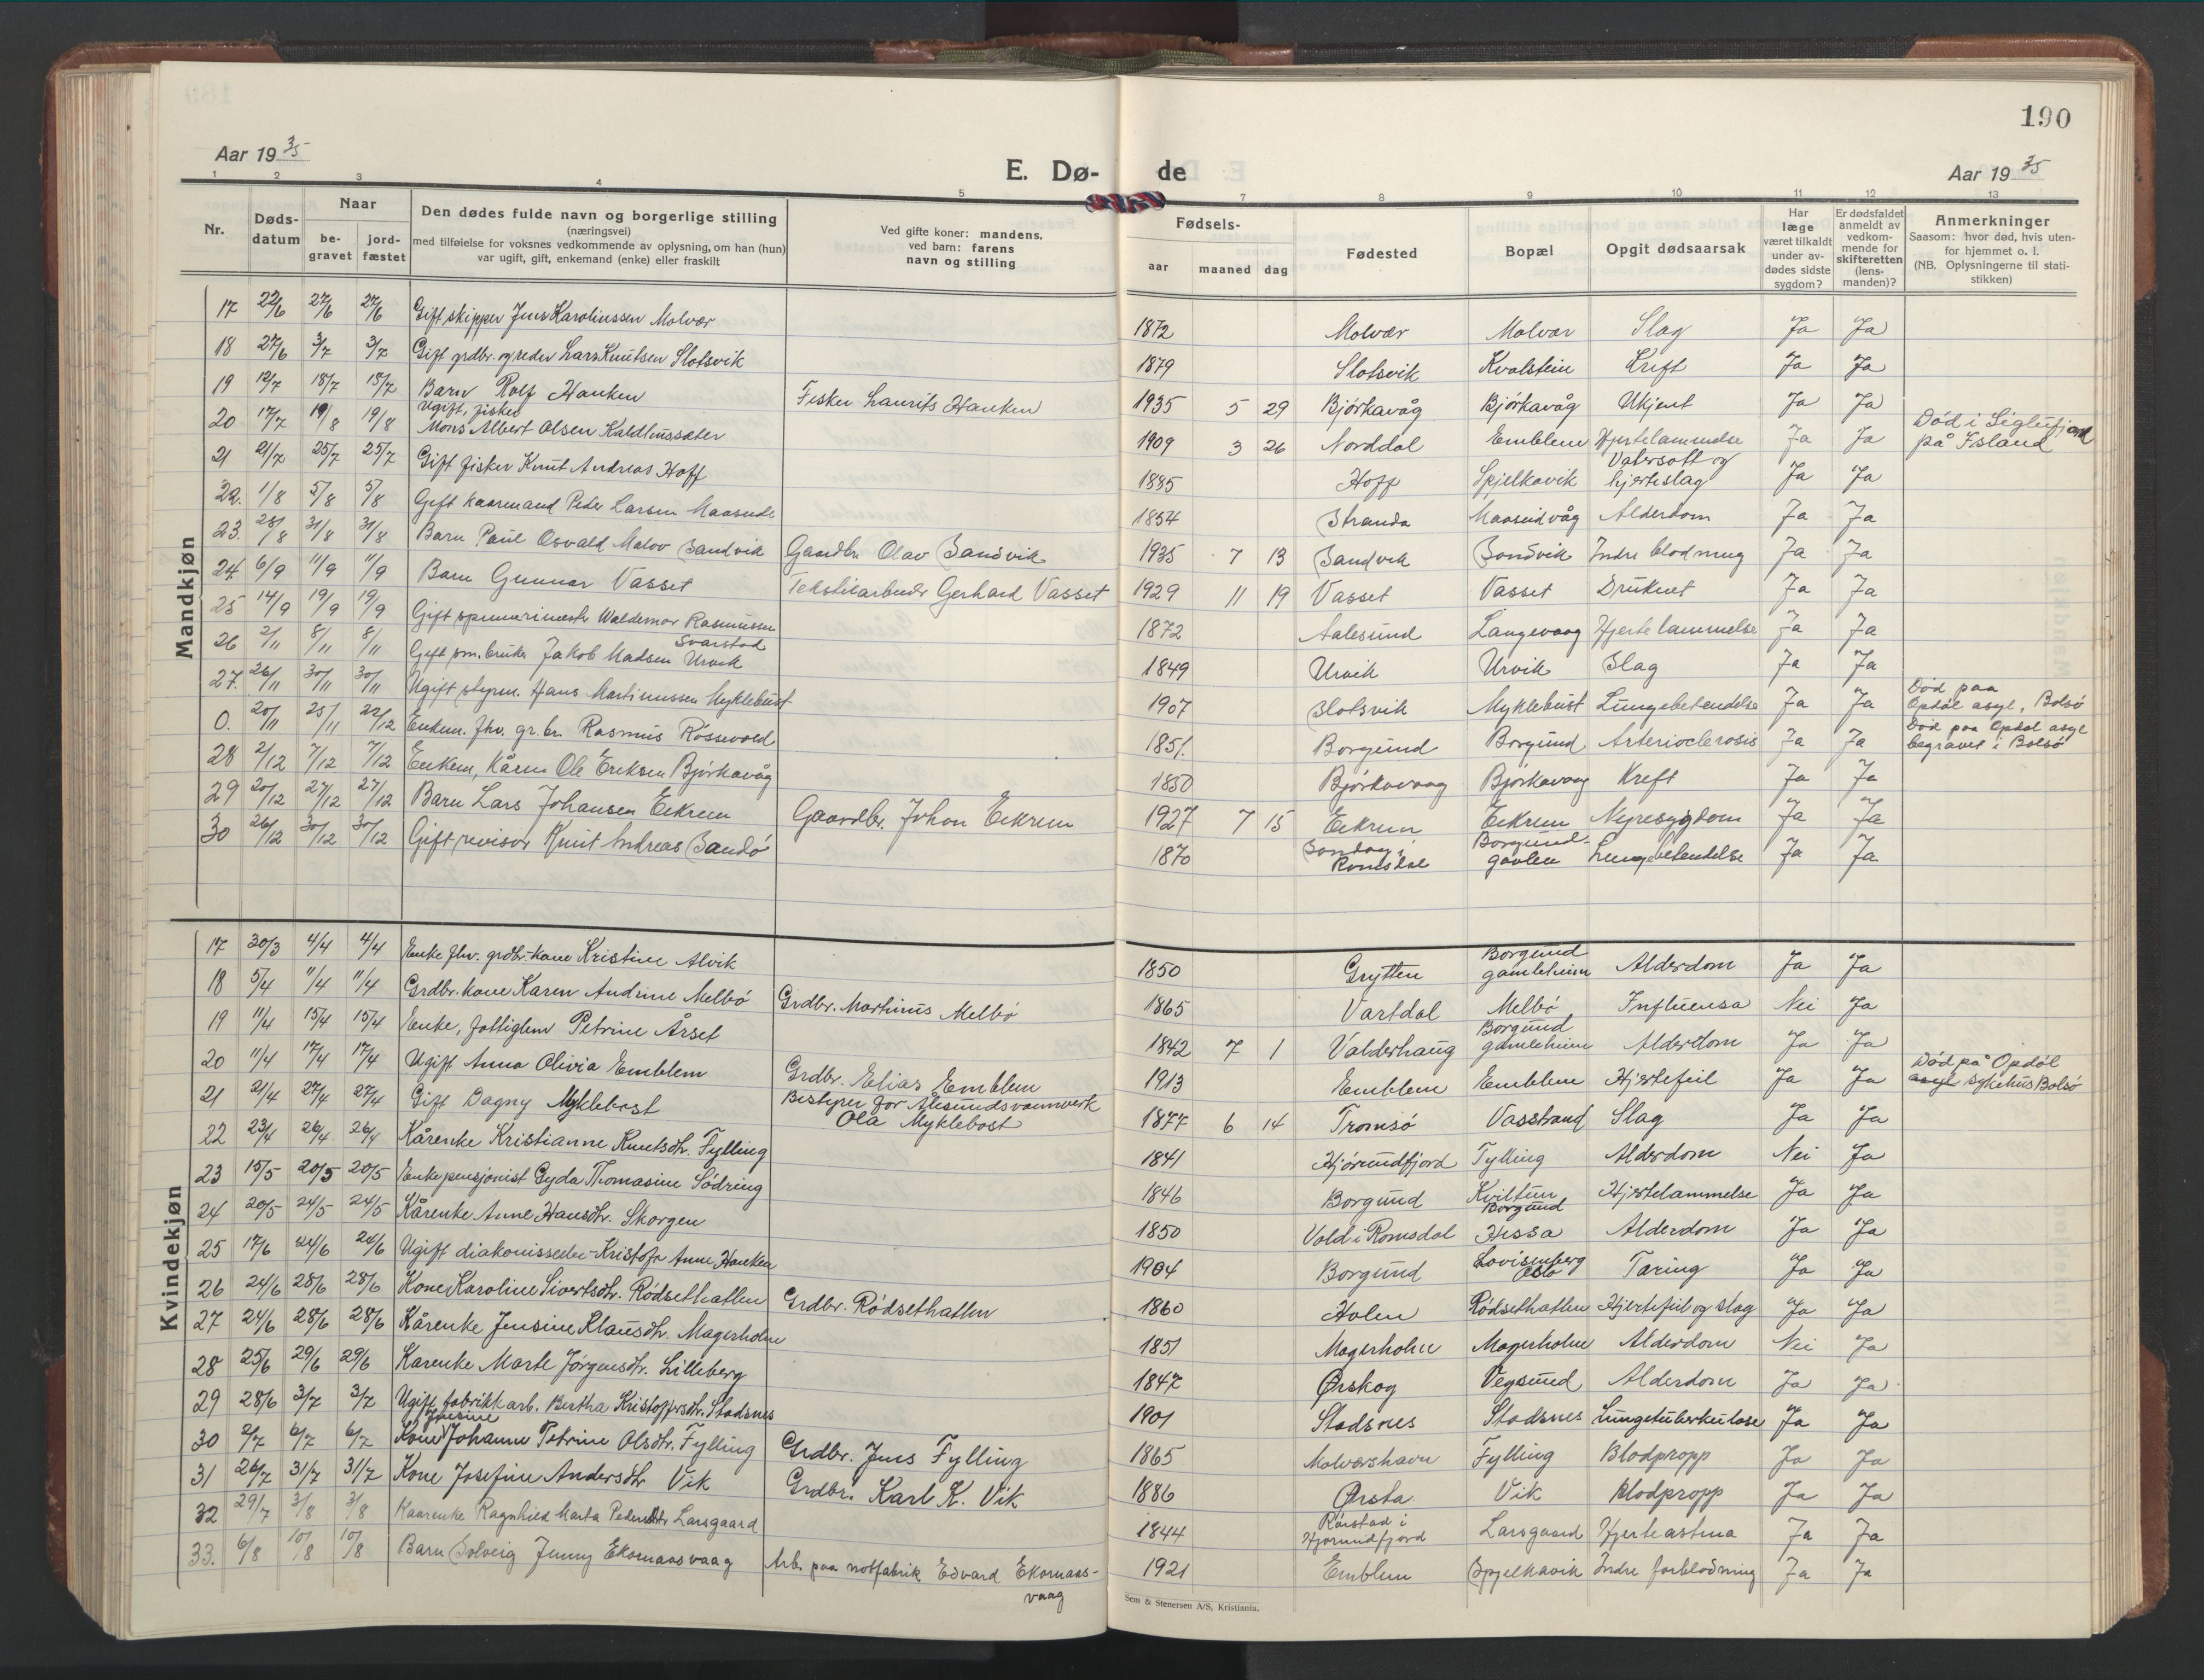 190
Aar 1935
E. Dø- de
Aar 1935
1 2 3 4 5 7 8 9 10 11 12 13
Nr.
Døds-
datum
Naar
be-
gravet
jord-
fæstet
Den dødes fulde navn og borgerlige stilling
(næringsvei)
med tilføielse for voksnes vedkommende av oplysning, om han (hun)
var ugift, gift, enkemand (enke) eller fraskilt
Ved gifte koner: mandens,
ved barn: farens
navn og stilling
Fødsels-
aar maaned dag
Fødested
Bopæl
Opgit dødsaarsak
Har
læge
været tilkaldt
under av-
dødes sidste
sygdom?
Er dødsfaldet
anmeldt av
vedkom-
mende for
skifteretten
(lens-
manden)?
Anmerkninger
Saasom: hvor død, hvis uten-
for hjemmet o. l.
(NB. Oplysningerne til stati-
stikken)
Mandkjøn
17 22/6 27/6 27/6 Gift skipper Jens Karolinussen Molvær 1872 Molvær Molvær Slag Ja Ja
18 27/6 3/7 3/7 Gift grdbr. og reder Lars Knutsen Slotsvik 1879 Slotsvik Kvalstein Kreft Ja Ja
19 12/7 18/7 18/7 Barn Rolf Hanken Fisker Laurits Hanken 1935 5 29 Bjórkavåg Bjórkavåg Ukjent Ja Ja
20 17/7 19/8 19/8 Ugift, fisker
Mons Albert Olsen Kaldhussæter 1909 3 26 Norddal Emblem Hjertelammelse Ja Ja Død i Siglufjord
på Island
21 21/7 25/7 25/7 Gift fisker Knut Andreas Hoff 1885 Hoff Spjelkavik Vatersott og
hjerteslag Ja Ja
22. 1/8 5/8 5/8 Gift kaarmand Peder Larsen Maaseide 1854 Stranda Maaseidvåg Alderdom Ja Ja
23. 28/8 31/8 31/8 Barn Paul Osvald Malov Sandvik Gaardbr. Olav Sandvik 1935 7 13 Sandvik Sandvik Indre blodning Ja Ja
24. 6/9 11/9 11/9 Barn Gunnar Vasset Tekstilarbeider Gerhard Vasset 1929 11 19 Vasset Vasset Druknet Ja Ja
25 14/9 19/9 19/9 Gift spinnerimester Waldemar Rasmussen
Svarstad 1872 Aalesund Langevaag Hjertelammelse Ja Ja
26 2/11 8/11 8/11 Gift sm.bruker Jakob Madsen Urvik 1849 Urvik Urvik Slag Ja Ja
27. 26/11 30/11 30/11 Ugift styrm. Hans Martinussen Myklebust 1907 Slotsvik Myklebust Lungebetendelse Ja Ja Død paa
Opdøl asyl, Bolsø
0. 20/11 25/11 22/12 Enkem. fhv. gr.br. Rasmus Róssevold 1851. Borgund Borgund Arterioclerosis Ja Ja Død paa Opdøl asyl
begravet i Bolsø
28 2/12 7/12 7/12 Enkem, Kårm. Ole Eriksen Bjórkavåg 1850 Bjórkavaag Bjórkavaag Kreft Ja Ja
29 20/12 27/12 27/12 Barn Lars Johansen Eikrem Gaardbr. Johan Eikrem 1927 7 15 Eikrem Eikrem Nyresygdom Ja Ja
30 26/12 30/12 30/12 Gift revisor Knut Andreas Sandó 1870 Sandøy i
Romsdal Borgund-
gavlen Lungebetendelse Ja Ja
Kvindekjøn
17 30/3 4/4 4/4 Enke fhv. grdbr-kone Kristine Alvik 1850 Grytten Borgund
gamleheim Alderdom Ja Ja
18 5/4 11/4 11/4 Grdbr. kone Karen Andrine Melbó Grdbr. Martinus Melbó 1865 Vartdal Melbó Influensa Nei Ja
19 11/4 15/4 15/4 Enke, fattiglem Petrine Årset 1842 7 1 Valderhaug Borgund
gamleheim Alderdom Ja Ja
20 11/4 17/4 17/4 Ugift Anna Olivia Emblem Grdbr. Elias Emblem 1913 Emblem Emblem Hjertefeil Ja Ja Død på Opdøl
asyl sykehus Bolsø
21 21/4 27/4 27/4 Gift Dagny Myklebost Bestyrer for Ålesunds vannverk
Ola Myklebost 1877 6 14 Tromsó Vasstrand Slag Ja Ja
22 23/4 26/4 26/4 Kårenke Kristianne Knutsdtr. Fylling 1841 Hjórundfjord Fylling Alderdom Nei Ja
23 15/5 20/5 20/5 Enkepensjonist Gyda Thomasine Södring 1846 Borgund Kviltun
Borgund Hjertelammelse Ja Ja
24 20/5 24/5 24/5 Kårenke Anne Hansdtr. Skorgen 1850 Vold i Romsdal Hessa Alderdom Ja Ja
25 17/6 24/6 24/6 Ugift diakonisseelev Kristofa Anne Hanken 1904 Borgund Lovisenberg
Oslo Tæring Ja Ja
26 24/6 28/6 28/6 Kone Karoline Sivertsdtr. Ródsethatlen Grdbr. Ródsethatlen 1860 Holen Ródsethatlen Hjertefeil og slag Ja Ja
27 24/6 28/6 28/6 Kårenke Jensine Klausdtr. Magerholm 1851 Magerholm Magerholm Alderdom Nei Ja
28 25/6 29/6 29/6 Kårenke Marte Jørgensdtr. Lilleberg 1847 Ørskog Vegsund Alderdom Ja Ja
29 28/6 3/7 3/7 Ugift fabrikkarb. Bertha Kristoffersdtr. Stadsnes 1901 Stadsnes Stadsnes Lungetuberkulose Ja Ja
30 2/7 6/7 6/7 Kone Johanne Petrine Olsdtr. Fylling Grdbr. Jens Fylling 1865 Malvershavn Fylling Blodpropp Ja Ja
31 26/7 31/7 31/7 Kone Josefine Andersdtr Vik Grdbr. Karl K. Vik 1886 Ørsta Vik Blodpropp Ja Ja
32 29/7 3/8 3/8 Kaarenke Ragnhild Marta Pedersdtr Larsgaard 1844 Rørstad i
Hjorundfjord Larsgaard Hjerteastma Ja Ja
33. 6/8 10/8 10/8 Barn Solveig Jenny Ekornaasvaag Arb. paa notfabrik Edvard Ekornaas-
vaag 1921 Emblem Spjelkavik Indre forblødning Ja Ja
Sem & Stenersen A/S, Kristiania.